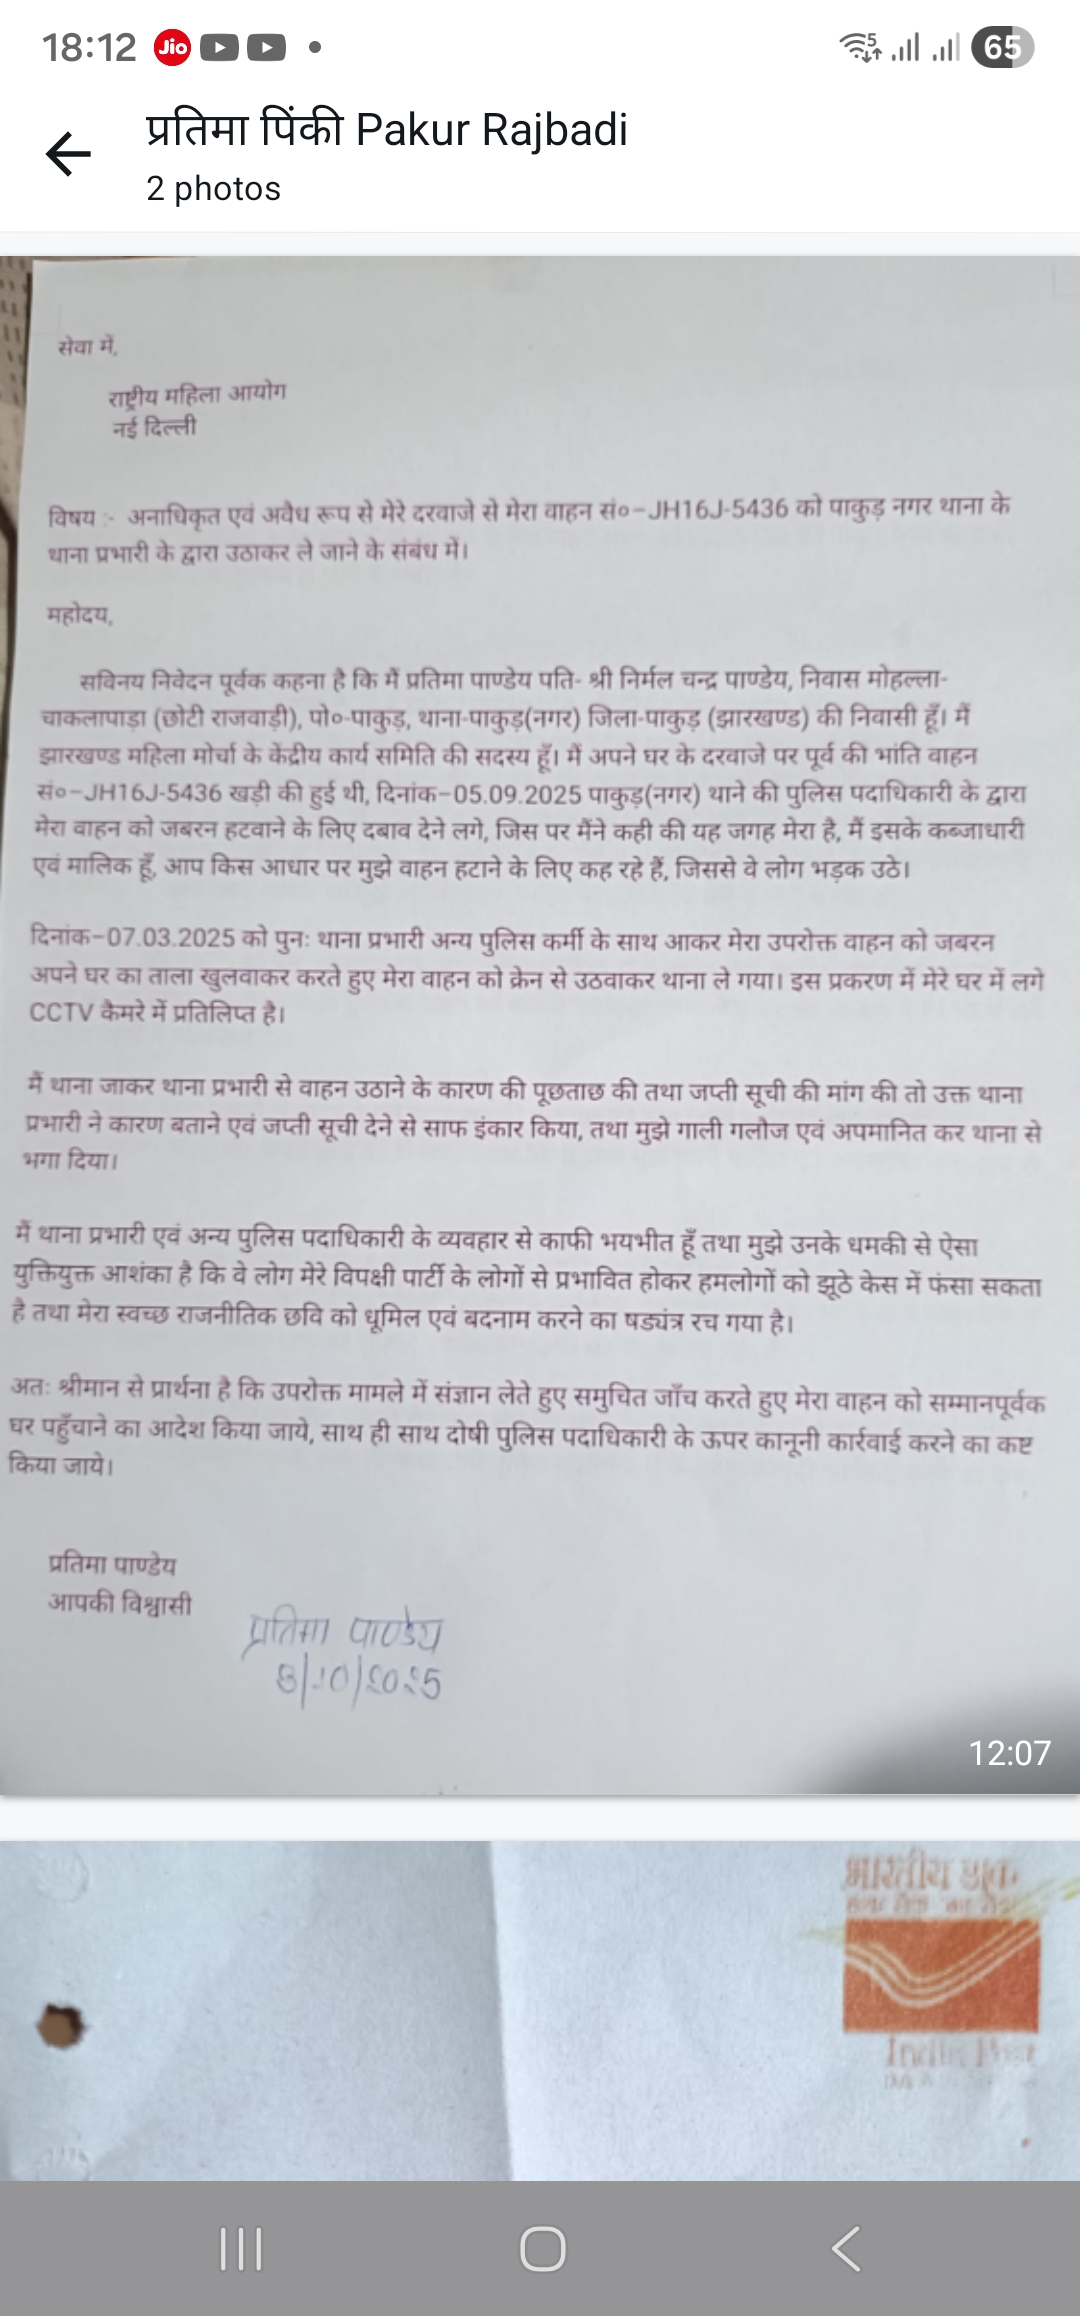 18:12 Jio 5 65
प्रतिमा पिंकी Pakur Rajbadi
2 photos
सेवा में,
राष्ट्रीय महिला आयोग
नई दिल्ली
विषय :- अनाधिकृत एवं अवैध रूप से मेरे दरवाजे से मेरा वाहन सं०-JH16J-5436 को पाकुड़ नगर थाना के
थाना प्रभारी के द्वारा उठाकर ले जाने के संबंध में।
महोदय,
सविनय निवेदन पूर्वक कहना है कि मैं प्रतिमा पाण्डेय पति- श्री निर्मल चन्द्र पाण्डेय, निवास मोहल्ला-
चाकलापाड़ा (छोटी राजवाड़ी), पो०-पाकुड़, थाना-पाकुड़(नगर) जिला-पाकुड़ (झारखण्ड) की निवासी हूँ। मैं
झारखण्ड महिला मोर्चा के केंद्रीय कार्य समिति की सदस्य हूँ। मैं अपने घर के दरवाजे पर पूर्व की भांति वाहन
सं०-JH16J-5436 खड़ी की हुई थी, दिनांक-05.09.2025 पाकुड़(नगर) थाने की पुलिस पदाधिकारी के द्वारा
मेरा वाहन को जबरन हटवाने के लिए दबाव देने लगे, जिस पर मैंने कही की यह जगह मेरा है, मैं इसके कब्जाधारी
एवं मालिक हूँ, आप किस आधार पर मुझे वाहन हटाने के लिए कह रहे हैं, जिससे वे लोग भड़क उठे।
दिनांक-07.03.2025 को पुनः थाना प्रभारी अन्य पुलिस कर्मी के साथ आकर मेरा उपरोक्त वाहन को जबरन
अपने घर का ताला खुलवाकर करते हुए मेरा वाहन को क्रेन से उठवाकर थाना ले गया। इस प्रकरण में मेरे घर में लगे
CCTV कैमरे में प्रतिलिप्त है।
मैं थाना जाकर थाना प्रभारी से वाहन उठाने के कारण की पूछताछ की तथा जप्ती सूची की मांग की तो उक्त थाना
प्रभारी ने कारण बताने एवं जप्ती सूची देने से साफ इंकार किया, तथा मुझे गाली गलौज एवं अपमानित कर थाना से
भगा दिया।
मैं थाना प्रभारी एवं अन्य पुलिस पदाधिकारी के व्यवहार से काफी भयभीत हूँ तथा मुझे उनके धमकी से ऐसा
युक्तियुक्त आशंका है कि वे लोग मेरे विपक्षी पार्टी के लोगों से प्रभावित होकर हमलोगों को झूठे केस में फंसा सकता
है तथा मेरा स्वच्छ राजनीतिक छवि को धूमिल एवं बदनाम करने का षड्यंत्र रच गया है।
अतः श्रीमान से प्रार्थना है कि उपरोक्त मामले में संज्ञान लेते हुए समुचित जाँच करते हुए मेरा वाहन को सम्मानपूर्वक
घर पहुँचाने का आदेश किया जाये, साथ ही साथ दोषी पुलिस पदाधिकारी के ऊपर कानूनी कार्रवाई करने का कष्ट
किया जाये।
प्रतिमा पाण्डेय
आपकी विश्वासी
प्रतिमा पाण्डेय
8/10/2025
12:07
भारतीय डाक